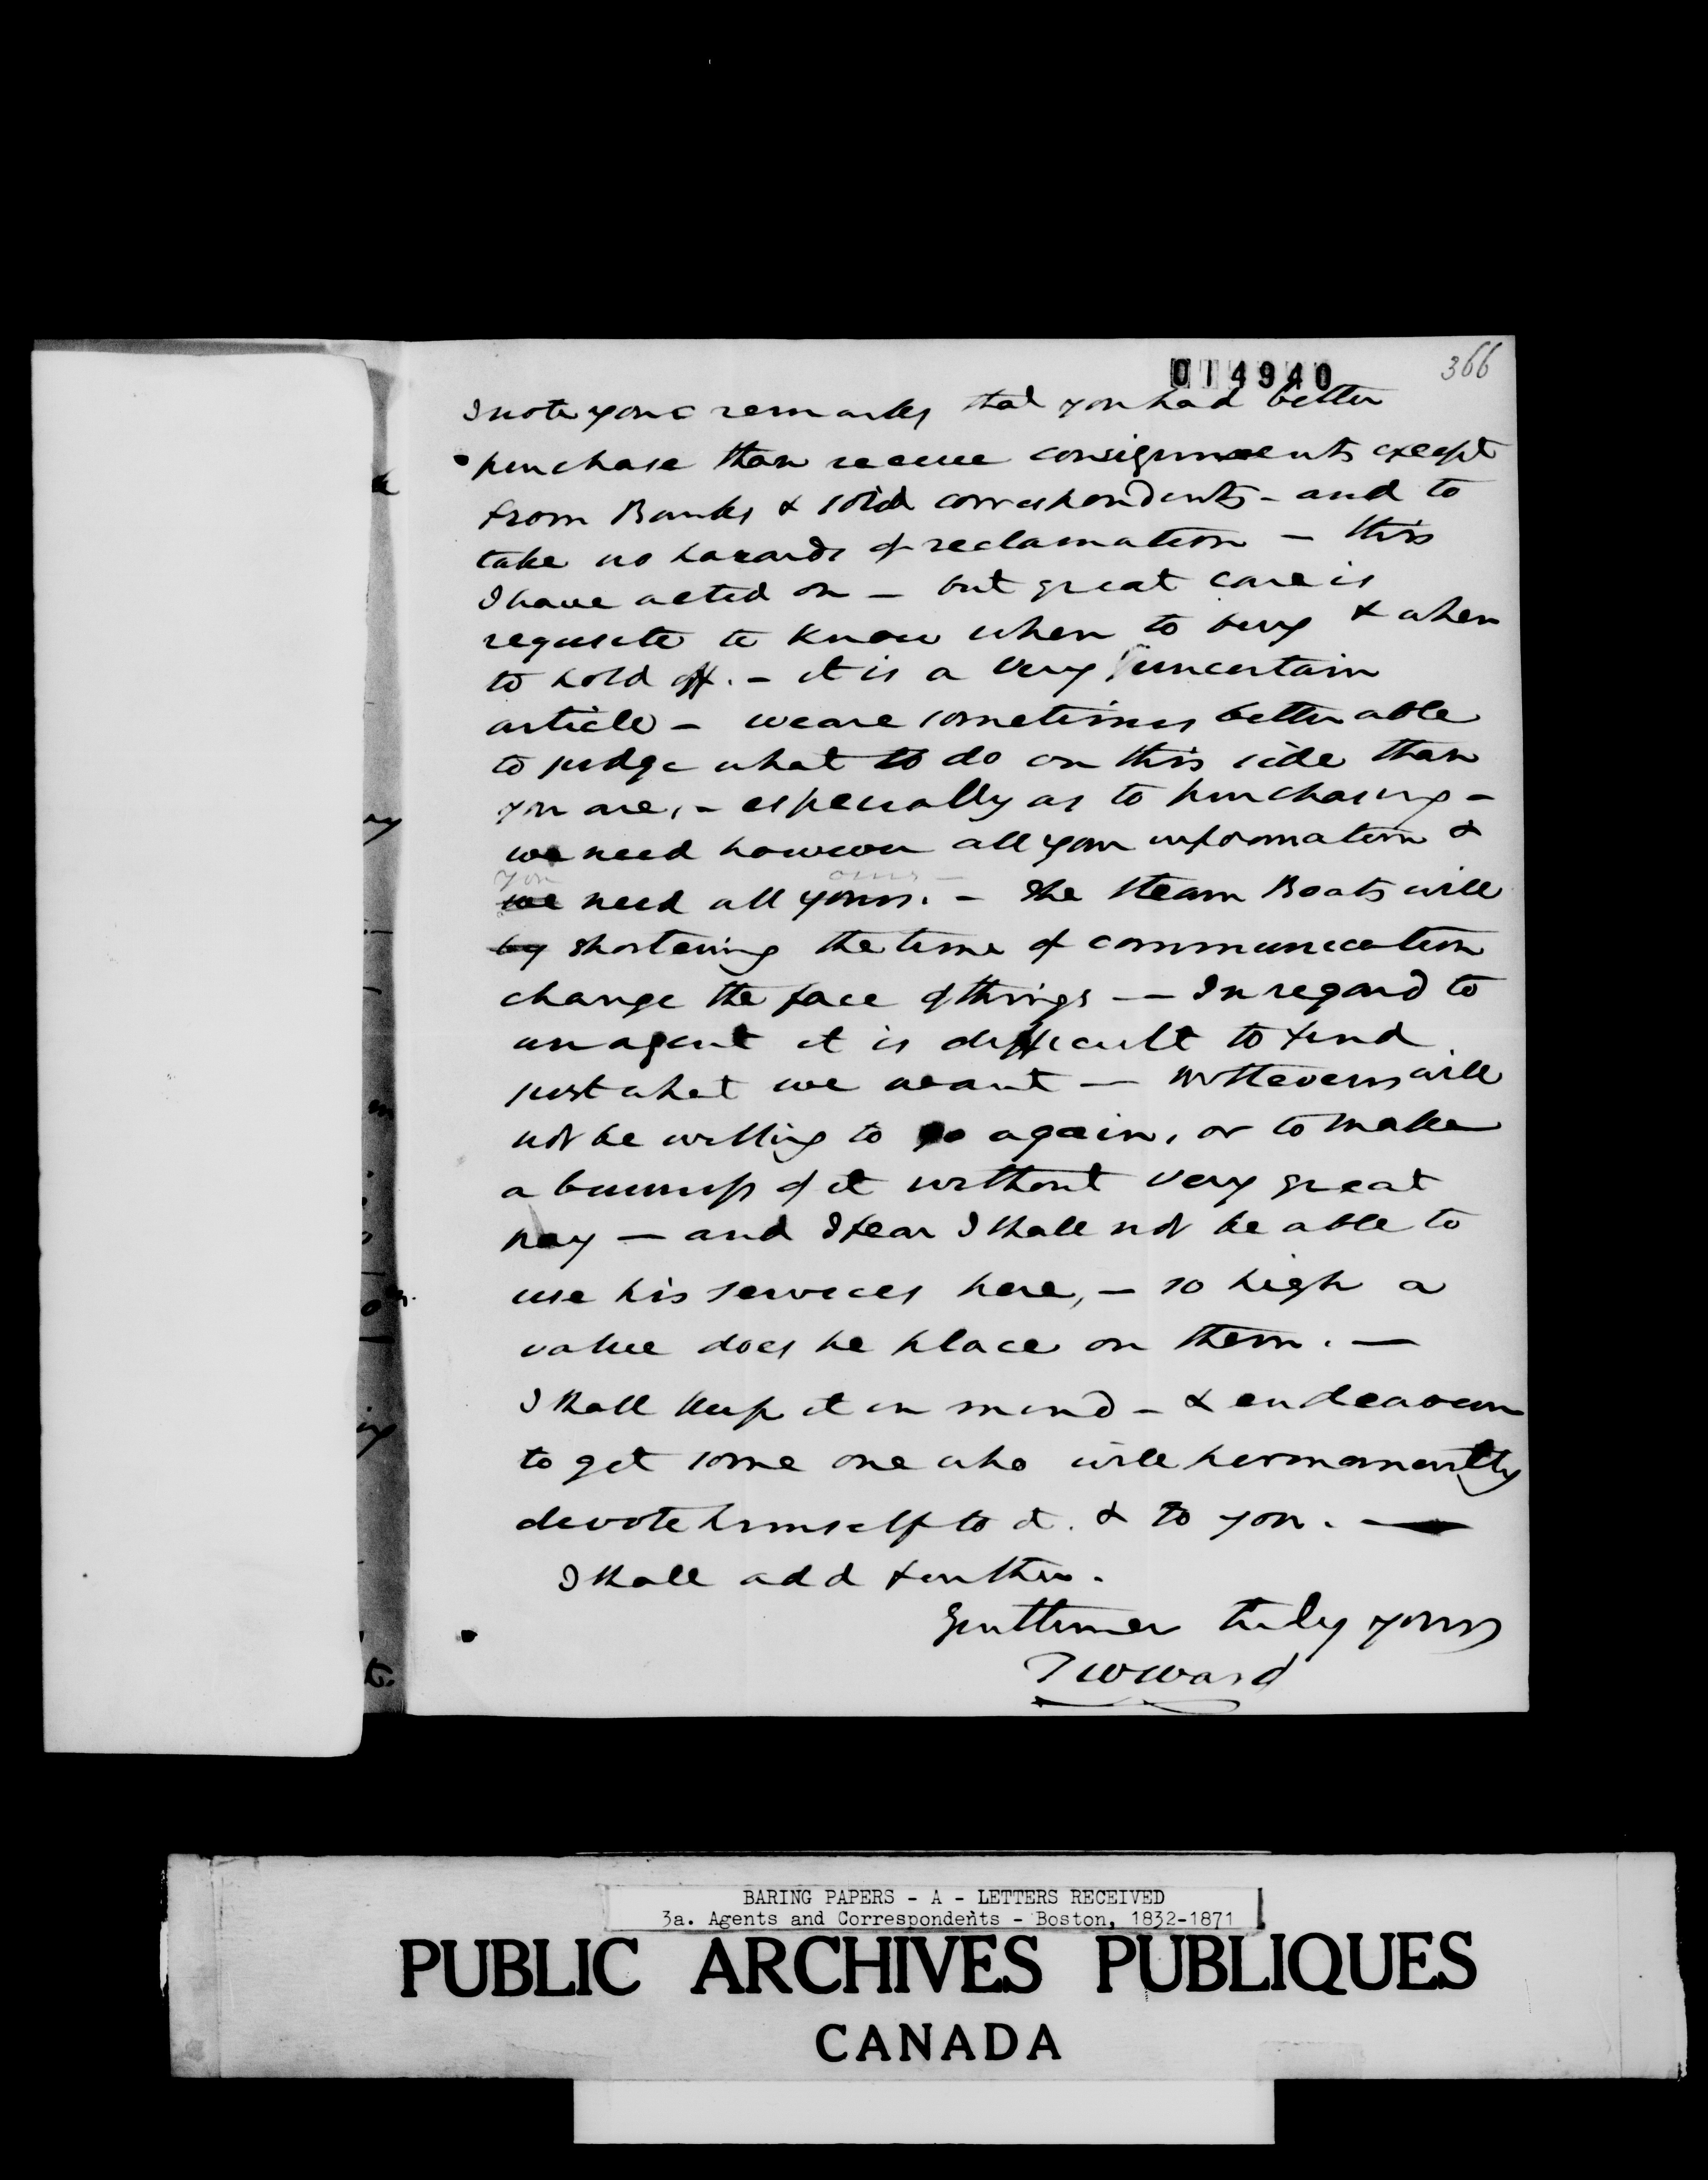 014940
366
I note your remarks that you had better
purchase than receive consignments except
from Banks & solid correspondents - and to
take no hazards of reclamation - this
I have acted on - but great care is
requisite to know when to buy & when
to hold off. - it is a very uncertain
article - we are sometimes better able
to judge what to do on this side than
you are, - especially as to purchasing -
we need however all your information &
you ours -
we need all yours. - The Steam Boats will
by shortening the time of communication
change the face of things - In regard to
an agent it is difficult to find
just what we want - Mr Stevens will
not be willing to go again, or to make
a business of it without very great
pay - and I fear I shall not be able to
use his services here, - so high a
value does he place on them. -
I shall keep it in mind - & endeavour
to get some one who will permanently
devote himself to it. & to you. -
I shall add further.
Gentlemen truly yours
T W Ward
BARING PAPERS - A - LETTERS RECEIVED
3a. Agents and Correspondents - Boston, 1832-1871
PUBLIC ARCHIVES PUBLIQUES
CANADA